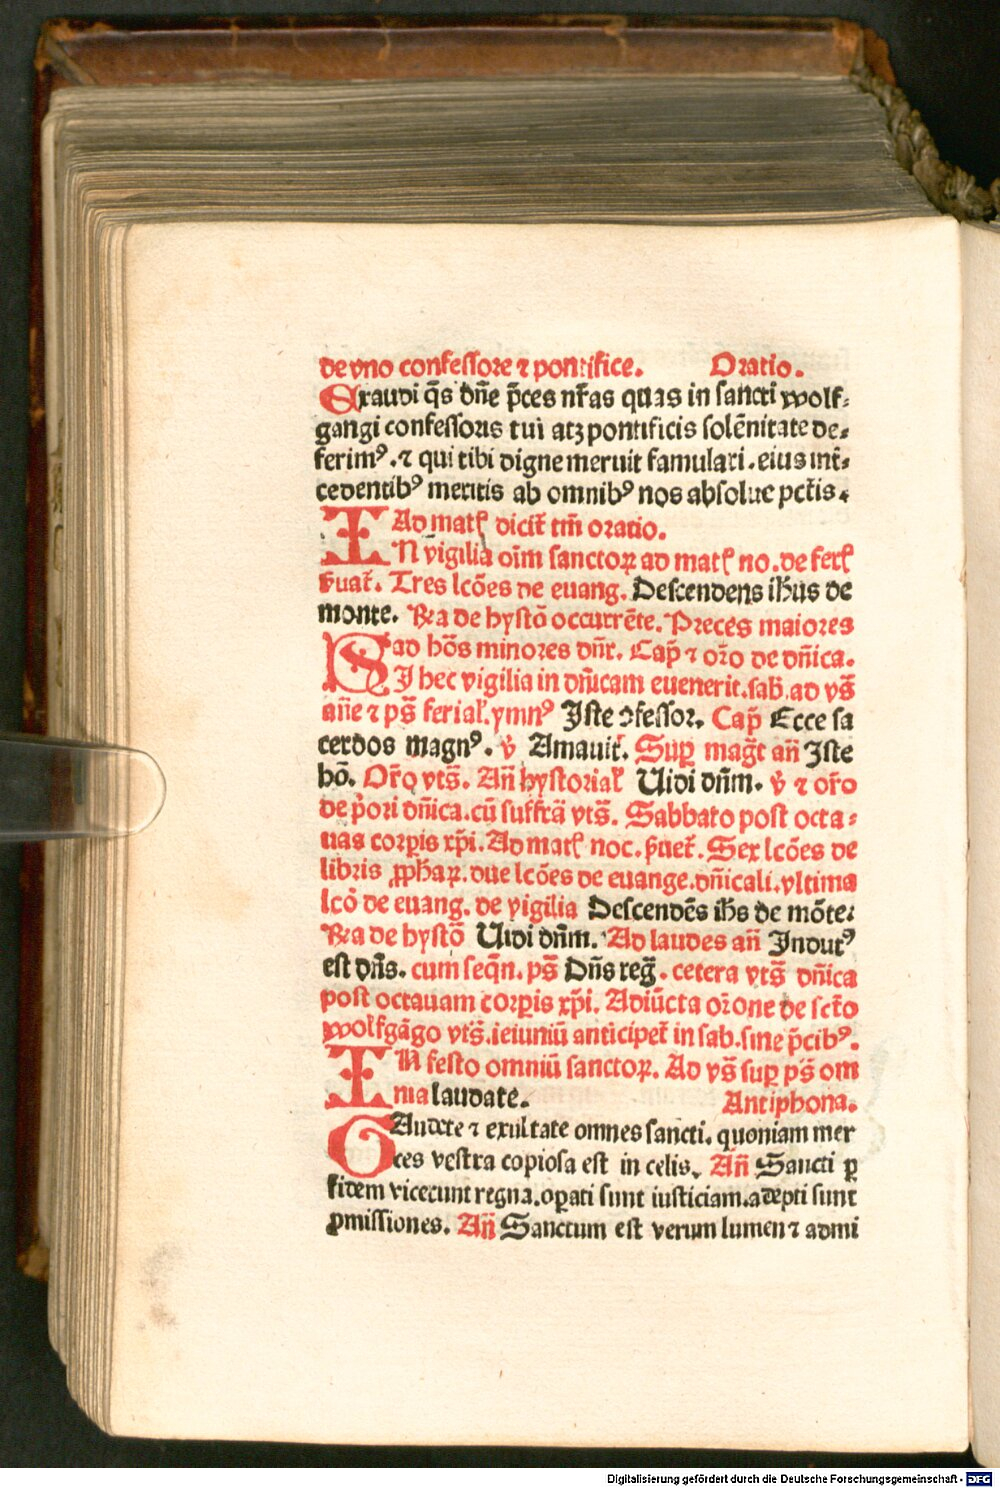 de vno confessore ⁊ pontifice. Oratio.
Exaudi q̄s dn̄e p̄ces nr̄as quas in sancti wolf⸗
gangi confessoris tui atqꝫ pontificis solēnitate de⸗
ferimꝰ.⁊ qui tibi digne meruit famulari.eius int̄⸗
cedentibꝰ meritis ab omnibꝰ nos absolue pctīs.
Ad mat̄ꝭ dicit̄ tm̄ oratio.
IN vigilia oīm sanctoꝝ ad mat̄ꝭ no.de ferꝭ
ẜuat̄. Tres lcōes de euang. Descendens ih̄us de
monte. R̄a de hystō occurrēte. Preces maiores
ad hōs minores dn̄r. Cap̄ ⁊ oꝛō de dn̄ica.
SI hec vigilia in dn̄icam euenerit.sab.ad vs̄
an̄e ⁊ ps̄ ferial̄.ymnꝰ Iste ↄfessor. Cap̄ Ecce sa
cerdos magnꝰ. v̇ Amauit̄. Suꝑ maḡt an̄ Iste
hō. Or̄o vts̄. An̄ hystorial̄ Uidi dn̄m. v̇ ⁊ or̄o
de p̄ori dn̄ica.cū suffrā vts̄. Sabbato post octa⸗
uas corꝑis xp̄i. Ad mat̄ꝭ noc. ẜuet̄. Sex lcōes de
libris ꝓphaꝝ.due lcōes de euange.dn̄icali.vltima
lcō de euang. de vigilia Descendēs ih̄s de mōte:
R̄a de hystō Uidi dn̄m. Ad laudes an̄ Indutꝰ
est dn̄s. cum seqn̄. ps̄ Dn̄s reḡ. cetera vts̄ dn̄ica
post octauam corꝑis xp̄i. Adiūcta orōne de sctō
wolfgāgo vts̄.ieiuniū anticipet̄ in sab.sine p̄cibꝰ.
IN festo omniū sanctoꝝ. Ad vs̄ suꝑ ps̄ om
nia laudate. Antiphona.
GAudete ⁊ exultate omnes sancti. quoniam mer
ces vestra copiosa est in celis. An̄ Sancti ꝑ
fidem vicerunt regna.oꝑati sunt iusticiam.adepti sunt
ꝓmissiones. An̄ Sanctum est verum lumen ⁊ admi
Digitalisierung gefördert durch die Deutsche Forschungsgemeinschaft - DFG